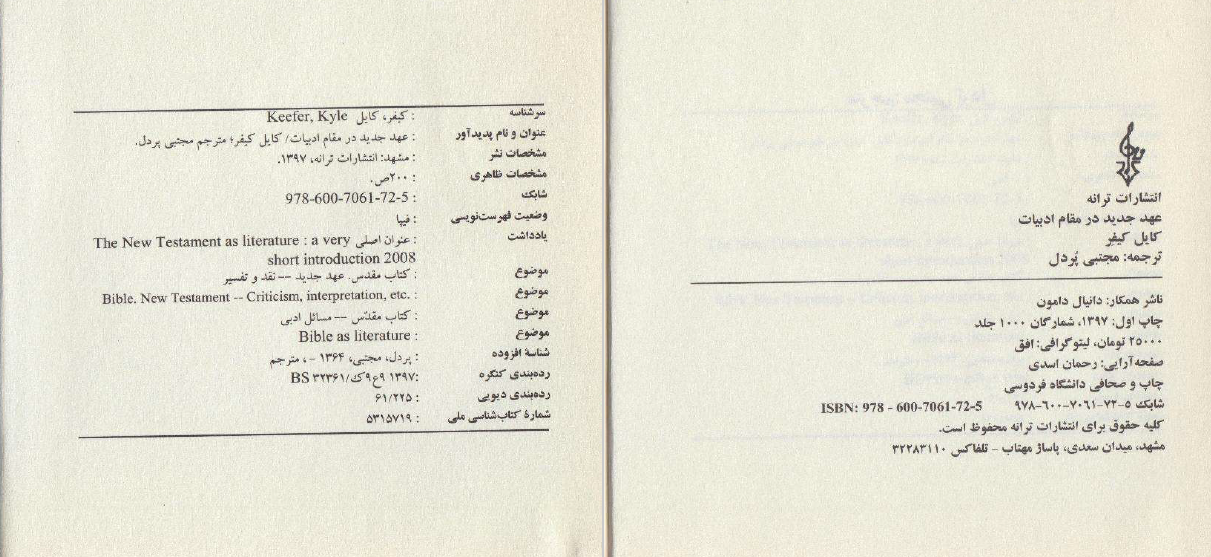 سرشناسه : کیفر، کایل Keefer, Kyle
عنوان و نام پدیدآور : عهد جدید در مقام ادبیات/ کایل کیفر؛ مترجم مجتبی پردل.
مشخصات نشر : مشهد: انتشارات ترانه، ۱۳۹۷.
مشخصات ظاهری : ۲۰۰ص.
شابک : 978-600-7061-72-5
وضعیت فهرست‌نویسی : فیپا
یادداشت : عنوان اصلی The New Testament as literature : a very
short introduction 2008
موضوع : کتاب مقدس. عهد جدید -- نقد و تفسیر
موضوع : Bible. New Testament -- Criticism, interpretation, etc.
موضوع : کتاب مقدّس -- مسائل ادبی
موضوع : Bible as literature
شناسهٔ افزوده : پردل، مجتبی، ۱۳۶۴ -، مترجم
رده‌بندی کنگره : ۱۳۹۷ ۹ع۹ک/BS ۲۳۶۱
رده‌بندی دیویی : ۶۱/۲۲۵
شمارهٔ کتاب‌شناسی ملی : ۵۳۱۵۷۱۹
ترانه
انتشارات ترانه
عهد جدید در مقام ادبیات
کایل کیفر
ترجمه: مجتبی پُردل
ناشر همکار: دانیال دامون
چاپ اول: ۱۳۹۷، شمارگان ۱۰۰۰ جلد
۲۵۰۰۰ تومان، لیتوگرافی: افق
صفحه‌آرایی: رحمان اسدی
چاپ و صحافی دانشگاه فردوسی
شابک ۵-۷۲-۷۰۶۱-۶۰۰-۹۷۸ ISBN: 978 - 600-7061-72-5
کلیه حقوق برای انتشارات ترانه محفوظ است.
مشهد، میدان سعدی، پاساژ مهتاب - تلفاکس ۳۲۲۸۳۱۱۰